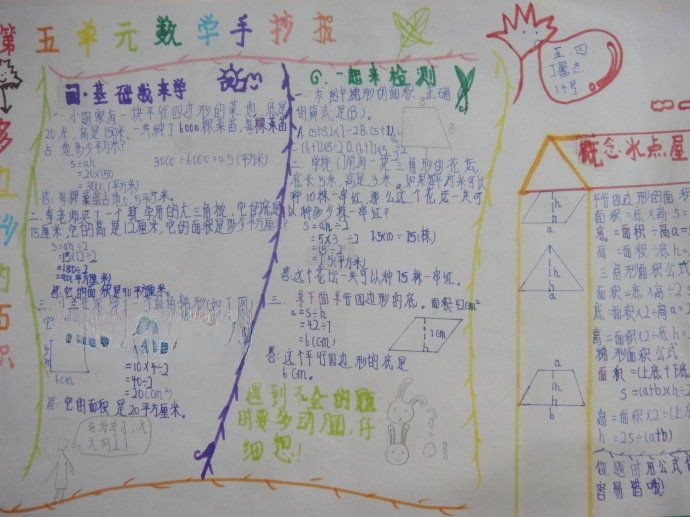 第五单元数学手抄报
五.四
14号
多边形的面积
四·基础我来学
一、小明家有一块平行四边形的菜地,底是
20米,高是15米,一共种了6000棵菜苗,每棵菜苗
占地多少平方米?
s=ah
=20×150
3000÷6000=0.5(平方米)
答:每棵菜苗占地0.5平方米。
15厘米,它的高是12厘米,它的面积是多少平方厘米?
s=ah÷2
=15×12÷2
=180÷2
=90(平方厘米)
答:它的面积是90平方厘米。
6cm
=10×4÷2
=40÷2
=20(cm²)
答:它的面积是20平方厘米。
好好学习,天
天向上!
G.一起来检测
一、求图中梯形的面积,正确
的算式是(B)。
二、学校门前有一块三角形的花坛,
底长5米,高是3米。如果每平方米可以
种10株一串红,那么这个花坛一共可
以种多少株一串红?
s=ah÷2
=5×3÷2
=15÷2
=7.5(平方米)
7.5×10=75(株)
答:这个花坛一共可以种75株一串红。
三、求下面平行四边形的底。面积42cm²
a=s÷h
=42÷7
=6(cm)
7cm
答:这个平行四边形的底是
6cm。
遇到不会的题
时要多动脑,仔
细想!
概念·水点屋
h
a
h
h
a
a
h
b
平行四边形的面积
面积=底×高 s=
底=面积÷高 a=s
高=面积÷底 h=
三角形面积公式
面积=底×高÷2
底=面积×2÷高 a=2
高=面积×2÷底 h=
梯形面积公式
面积=(上底+下底
s=(a+b)×h÷2
高=面积×2÷(上
h=2s÷(a+b)
做题时用公式
容易错哦!